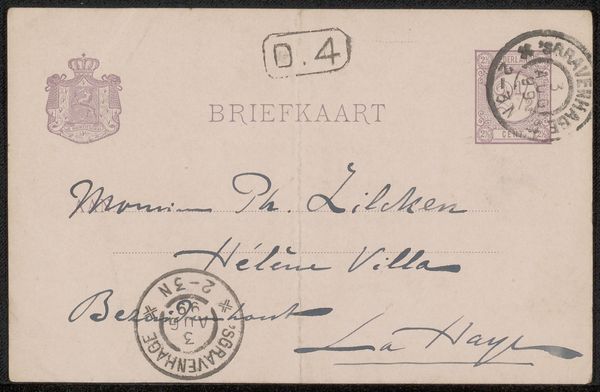 D.4
BRIEFKAART
'SGRAVENHAGE
3
AUG
99
CENT
Monsieur Ph. Zilcken
Hélène Villa
Bezuidenhout
La Haye
'SGRAVENHAGE
3
AUG
99
2-3N